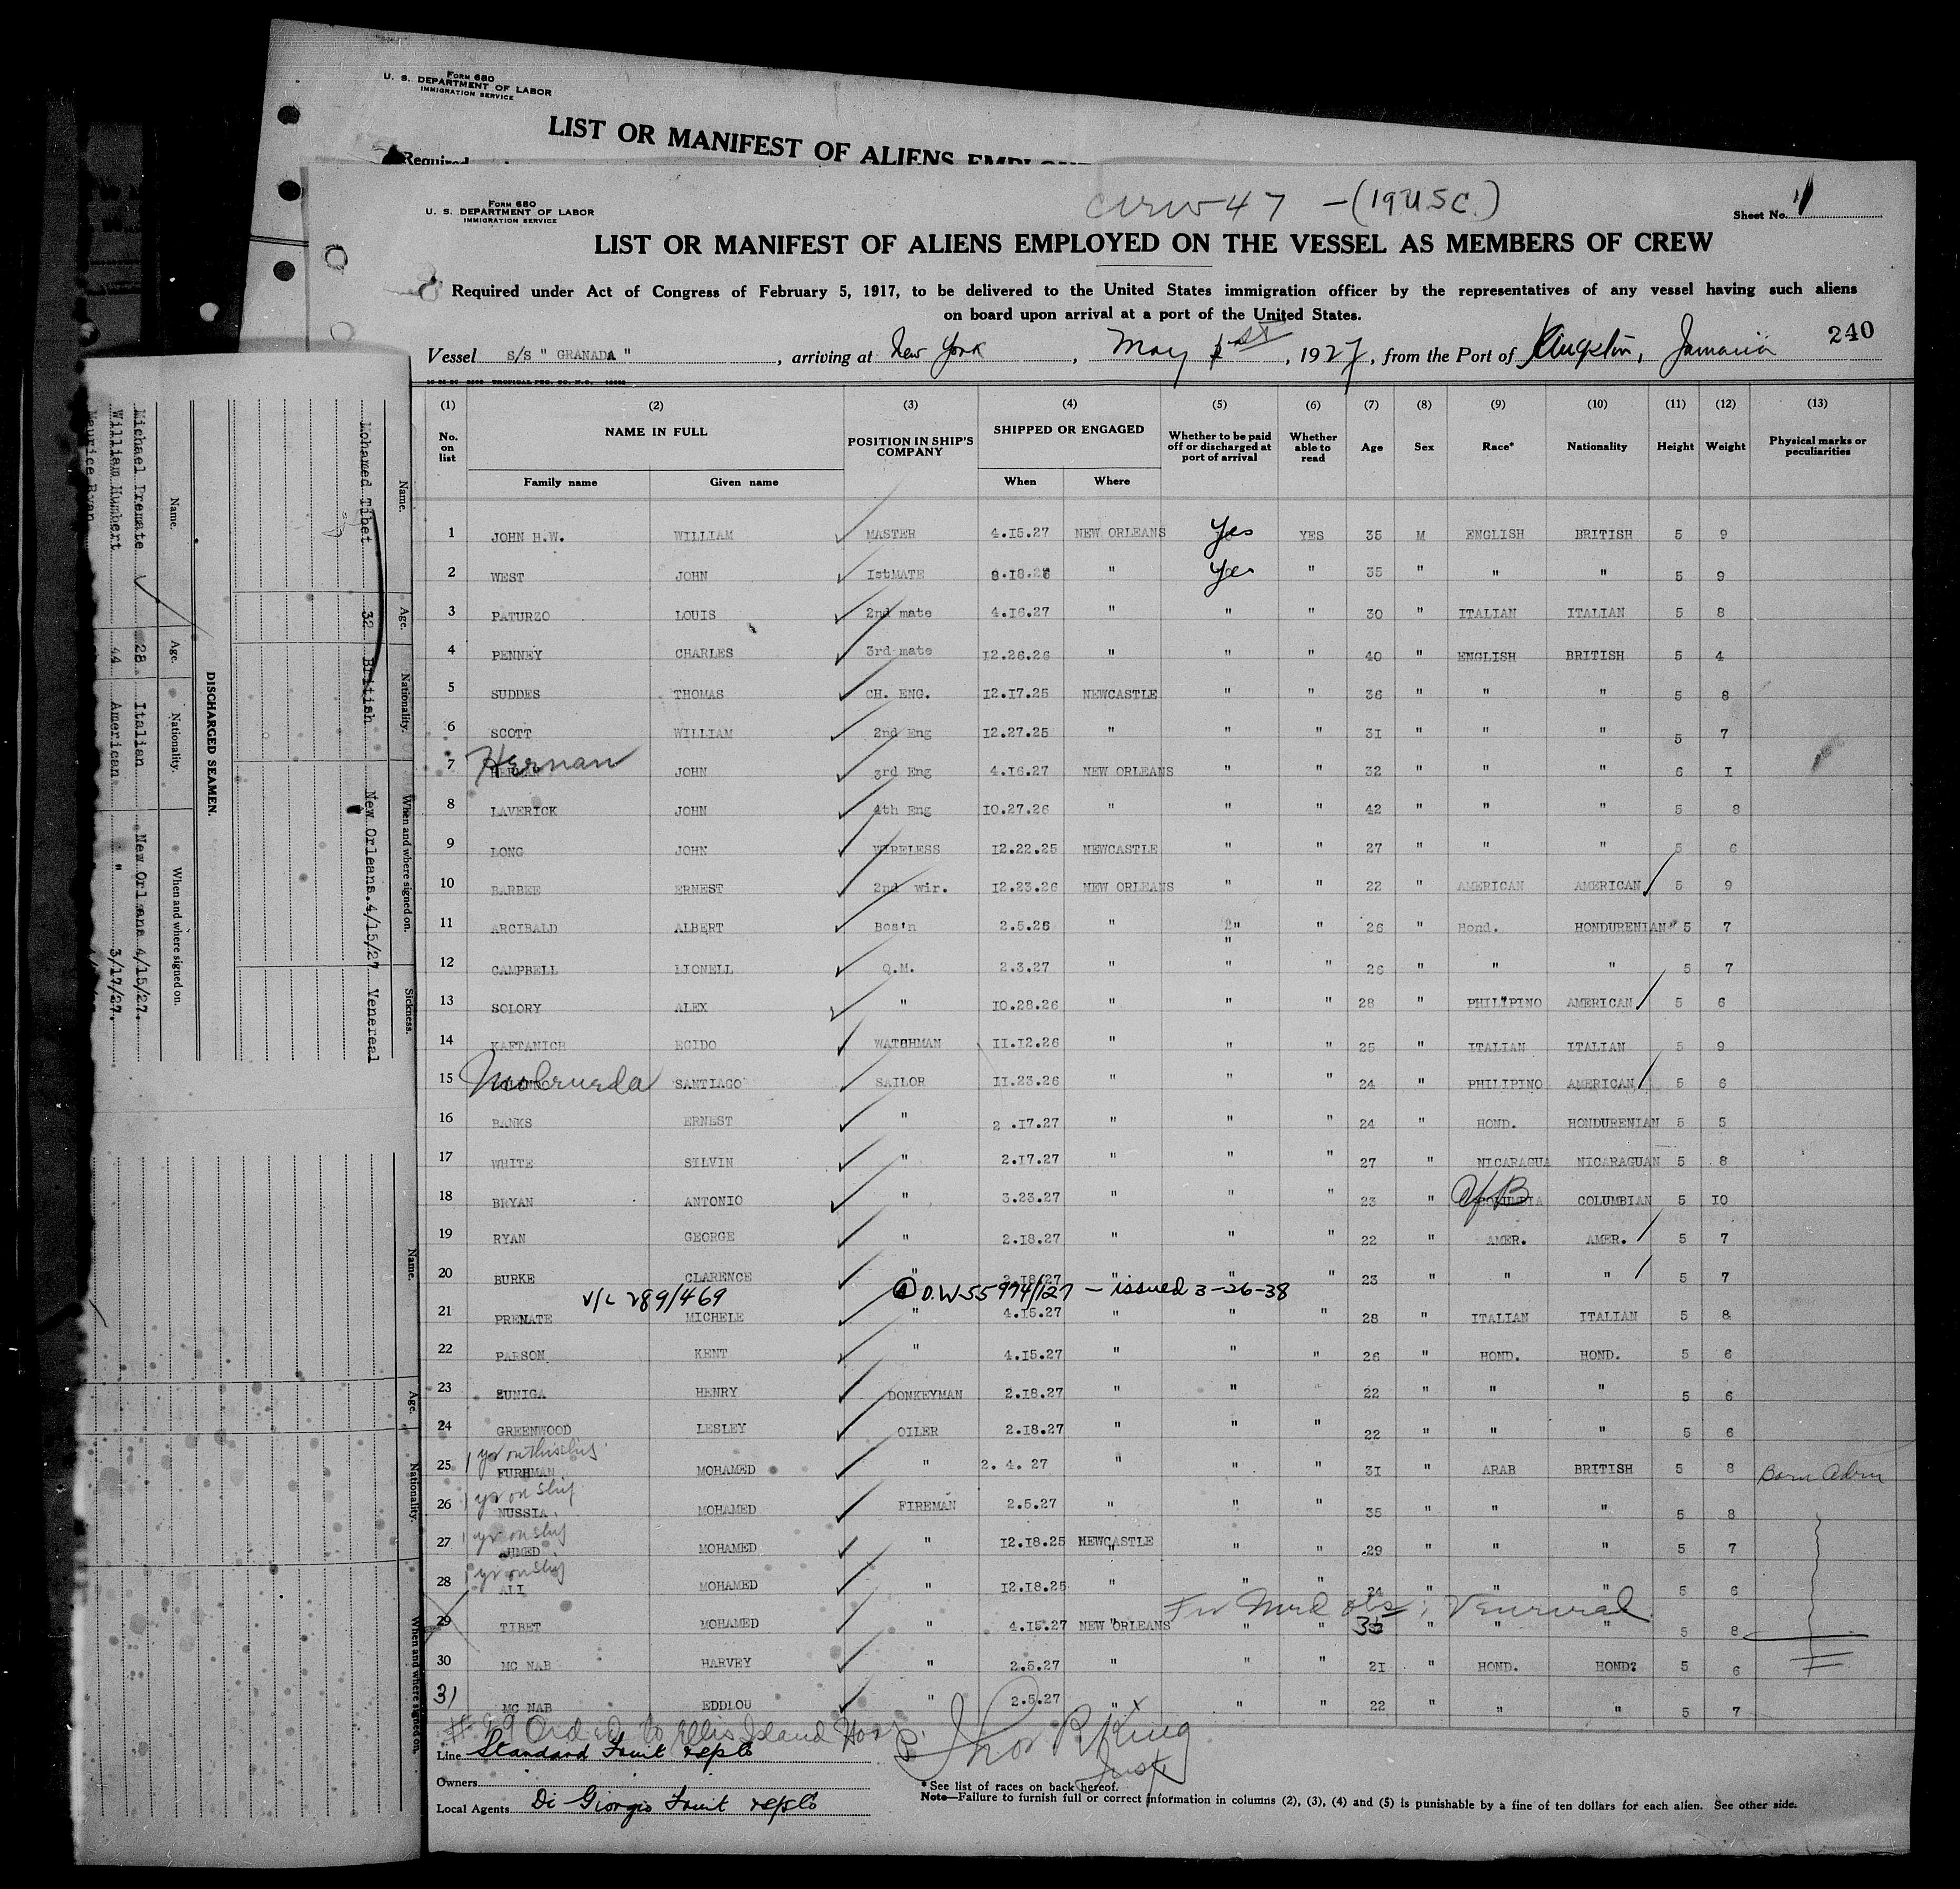 FORM 680
U. S. DEPARTMENT OF LABOR
IMMIGRATION SERVICE
LIST OR MANIFEST OF ALIENS
Required
FORM 680
U. S. DEPARTMENT OF LABOR
IMMIGRATION SERVICE
Crew 47 - (19 U.S.C.)
Sheet No. 1
LIST OR MANIFEST OF ALIENS EMPLOYED ON THE VESSEL AS MEMBERS OF CREW
Required under Act of Congress of February 5, 1917, to be delivered to the United States immigration officer by the representatives of any vessel having such aliens
on board upon arrival at a port of the United States.
240
Vessel S/S " GRANADA ", arriving at New York, May 1st, 1927, from the Port of Kingston, Jamaica
(1) (2) (3) (4) (5) (6) (7) (8) (9) (10) (11) (12) (13)
No. on list NAME IN FULL POSITION IN SHIP'S COMPANY SHIPPED OR ENGAGED Whether to be paid off or discharged at port of arrival Whether able to read Age Sex Race* Nationality Height Weight Physical marks or peculiarities
Family name Given name When Where
1 JOHN H.W. WILLIAM MASTER 4.15.27 NEW ORLEANS Yes YES 35 M ENGLISH BRITISH 5 9
2 WEST JOHN IstMATE 8.18.26 " Yes " 35 " " " 5 9
3 PATURZO LOUIS 2nd mate 4.16.27 " " " 30 " ITALIAN ITALIAN 5 8
4 PENNEY CHARLES 3rd mate 12.26.26 " " " 40 " ENGLISH BRITISH 5 4
5 SUDDES THOMAS CH. ENG. 12.17.25 NEWCASTLE " " 36 " " " 5 8
6 SCOTT WILLIAM 2nd Eng 12.27.25 " " " 31 " " " 5 7
7 Hernan JOHN 3rd Eng 4.16.27 NEW ORLEANS " " 32 " " " 6 I
8 LAVERICK JOHN 4th Eng 10.27.26 " " " 42 " " " 5 8
9 LONG JOHN WIRELESS 12.22.25 NEWCASTLE " " 27 " " " 5 6
10 BARBEE ERNEST 2nd wir. 12.23.26 NEW ORLEANS " " 22 " AMERICAN AMERICAN 5 9
11 ARCIBALD ALBERT Bos'n 2.5.26 " " " 26 " Hond. HONDURENIAN 5 7
12 CAMPBELL LIONELL Q.M. 2.3.27 " " " 26 " " " 5 7
13 SOLORY ALEX " 10.28.26 " " " 28 " PHILIPINO AMERICAN 5 6
14 KAFTANICH EGIDO WATCHMAN 11.12.26 " " " 25 " ITALIAN ITALIAN 5 9
15 SANTIAGO SAILOR 11.23.26 " " " 24 " PHILIPINO AMERICAN 5 6
16 BANKS ERNEST " 2 .17.27 " " " 24 " HOND. HONDURENIAN 5 5
17 WHITE SILVIN " 2.17.27 " " " 27 " NICARAGUA NICARAGUAN 5 8
18 BRYAN ANTONIO " 3.23.27 " " " 23 " Af B COLUMBIAN 5 10
19 RYAN GEORGE " 2.18.27 " " " 22 " AMER. AMER. 5 7
20 BURKE CLARENCE " 2.18.27 " " " 23 " " " 5 7
V/L 289/469 D.W 55974/127 - issued 3-26-38
21 PRENATE MICHELE " 4.15.27 " " " 28 " ITALIAN ITALIAN 5 8
22 PARSON KENT " 4.15.27 " " " 26 " HOND. HOND. 5 6
23 ZUNIGA HENRY DONKEYMAN 2.18.27 " " " 22 " " " 5 6
24 GREENWOOD LESLEY OILER 2.18.27 " " " 22 " " " 5 6
1 yr on this ship.
25 FURHMAN MOHAMED " 2. 4. 27 " " " 31 " ARAB BRITISH 5 8 Born Aden
1 yr on ship
26 NUSSIA MOHAMED FIREMAN 2.5.27 " " " 35 " " " 5 8
1 yr on ship
27 AHMED MOHAMED " 12.18.25 NEWCASTLE " " 29 " " " 5 7
1 yr on ship
28 ALI MOHAMED " 12.18.25 " " " 24 " " " 5 6
For Med obs; Venereal
29 TIBET MOHAMED " 4.15.27 NEW ORLEANS " " 32 " " " 5 8
30 MC NAB HARVEY " 2.5.27 " " " 21 " HOND. HOND. 5 6
31 MC NAB EDDLOU " 2.5.27 " " " 22 " " " 5 7
#29 Ordered to Ellis Island Hosp.
Thos R King
Insp
Line Standard Fruit
Owners
Local Agents Di Giorgio Fruit
*See list of races on back hereof.
Note—Failure to furnish full or correct information in columns (2), (3), (4) and (5) is punishable by a fine of ten dollars for each alien. See other side.
Name. Age. Nationality. When and where signed on. Sickness.
Mohamed Tibet 32 British New Orleans.4/15/27 Venereal
DISCHARGED SEAMEN.
Name. Age. Nationality. When and where signed on.
Michael Premate 28 Italian New Orleans 4/15/27.
William Humbert 44 American " 3/17/27.
Maurice Ryan
Name. Age. Nationality. When and where signed on.